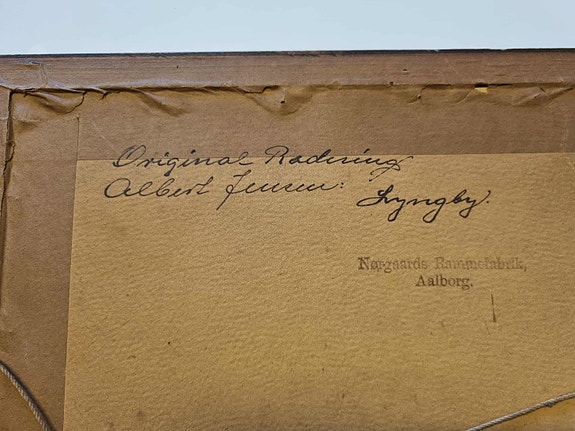 Original Radering
Albert Jensen: Lyngby.
Nørgaards Rammefabrik,
Aalborg.